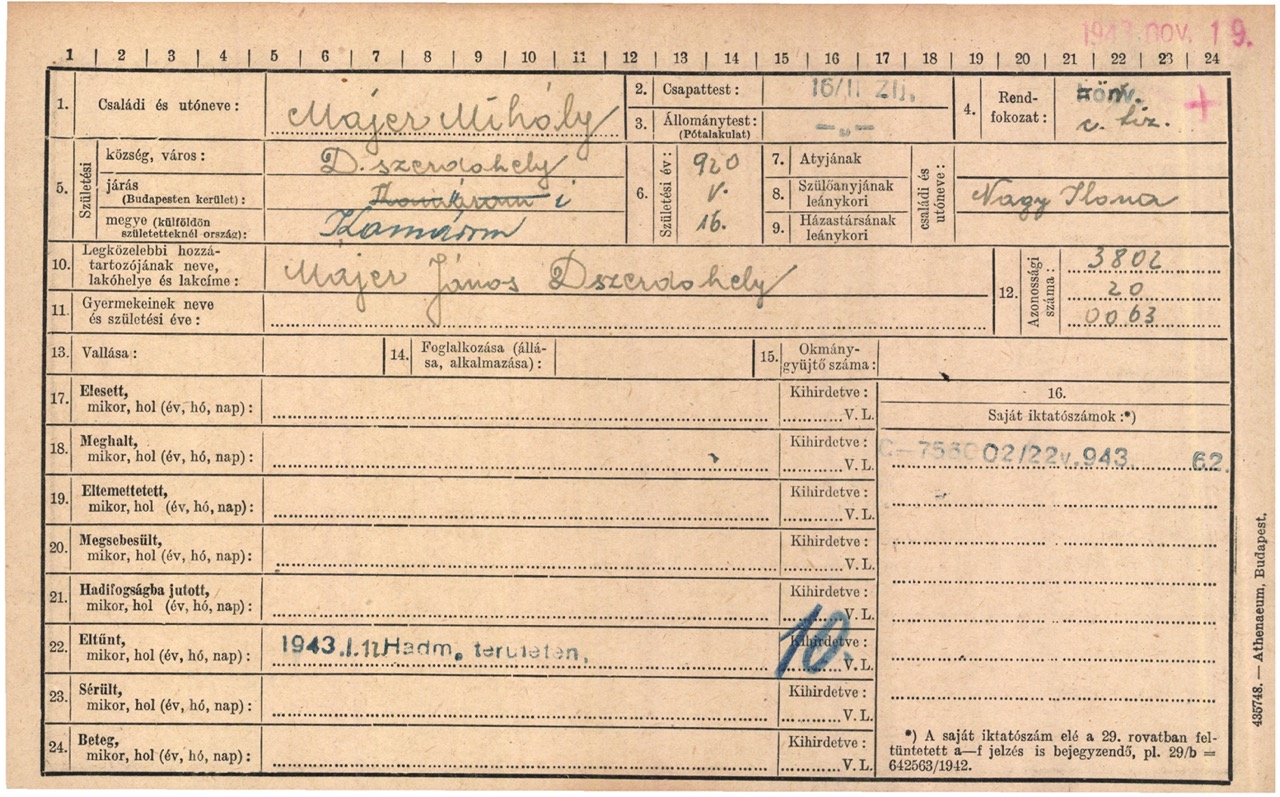 1943 NOV. 19.
1 | 2 | 3 | 4 | 5 | 6 | 7 | 8 | 9 | 10 | 11 | 12 | 13 | 14 | 15 | 16 | 17 | 18 | 19 | 20 | 21 | 22 | 23 | 24
1. Családi és utóneve: Májer Mihály
2. Csapattest: 16/II Zlj.
3. Állománytest: (Pótalakulat) —„—
4. Rendfokozat: honv.
c. tiz.
5. Születési
község, város: D. szerdahely
járás (Budapesten kerület): Komárom i
megye (külföldön születetteknél ország): Komárom
6. Születési év: 920
V.
16.
7. Atyjának
8. Szülőanyjának leánykori
9. Házastársának leánykori
családi és utóneve:
Nagy Ilona
10. Legközelebbi hozzátartozójának neve, lakóhelye és lakcíme: Majer János Dszerdahely
11. Gyermekeinek neve és születési éve:
12. Azonossági száma: 3802
20
0063
13. Vallása:
14. Foglalkozása (állása, alkalmazása):
15. Okmánygyüjtő száma:
16.
Saját iktatószámok:*)
02/22v.943 62.
17. Elesett,
mikor, hol (év, hó, nap):
Kihirdetve:
V. L.
18. Meghalt,
mikor, hol (év, hó, nap):
Kihirdetve:
V. L.
19. Eltemettetett,
mikor, hol (év, hó, nap):
Kihirdetve:
V. L.
20. Megsebesült,
mikor, hol (év, hó, nap):
Kihirdetve:
V. L.
21. Hadifogságba jutott,
mikor, hol (év, hó, nap):
Kihirdetve:
V. L.
22. Eltűnt,
mikor, hol (év, hó, nap): 1943.I.17 Hadm. területen,
Kihirdetve:
V. L.
10.
23. Sérült,
mikor, hol (év, hó, nap):
Kihirdetve:
V. L.
24. Beteg,
mikor, hol (év, hó, nap):
Kihirdetve:
V. L.
*) A saját iktatószám elé a 29. rovatban feltüntetett a—f jelzés is bejegyzendő, pl. 29/b = 642563/1942.
435748. — Athenaeum, Budapest.